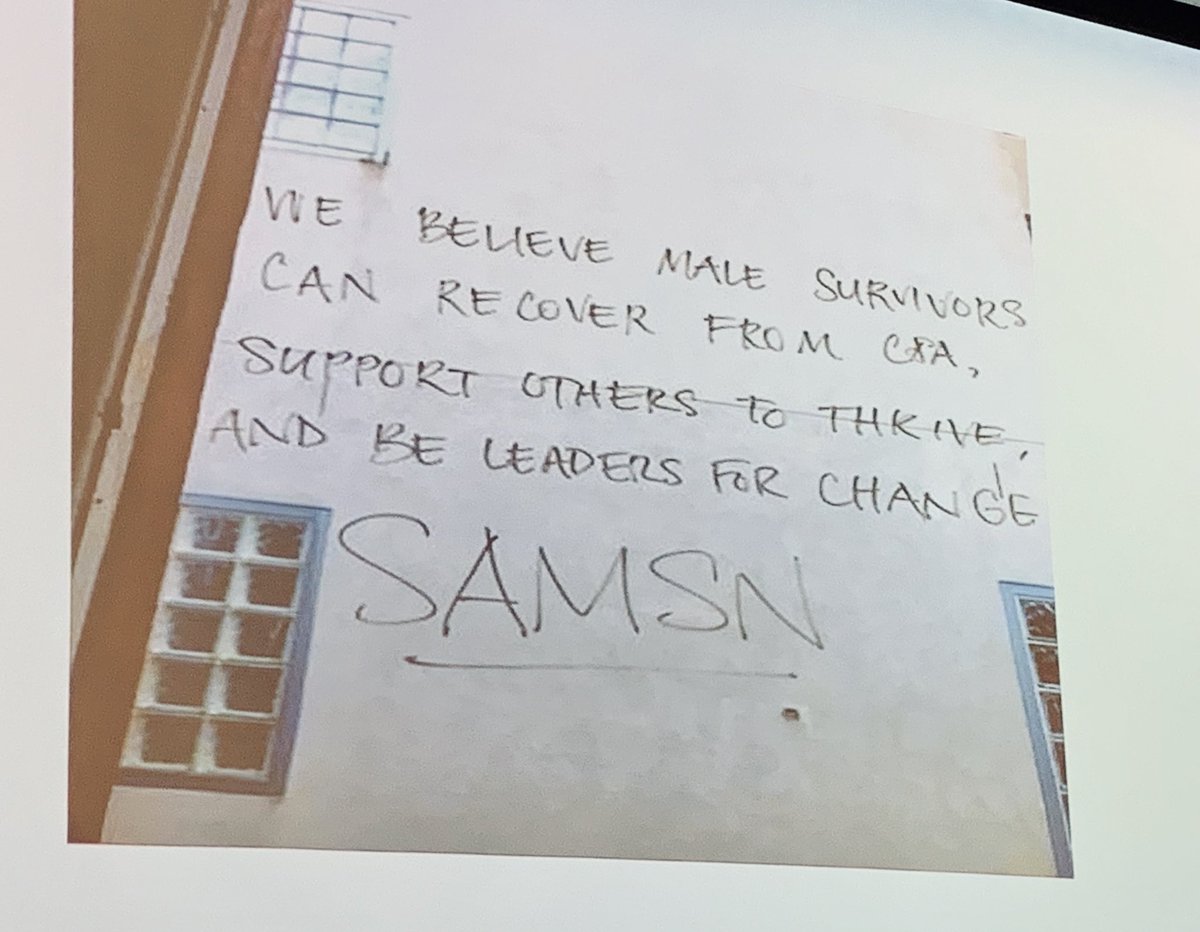 WE BELIEVE MALE SURVIVORS
CAN RECOVER FROM CSA,
SUPPORT OTHERS TO THRIVE,
AND BE LEADERS FOR CHANGE
SAMSN